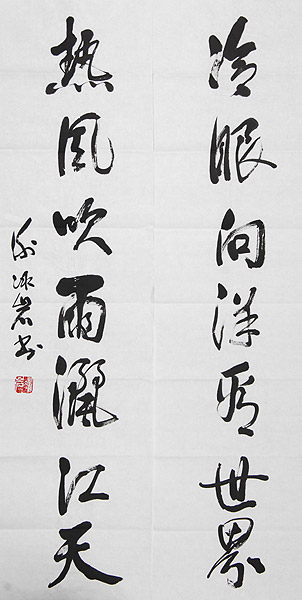 冷眼向洋看世界
热风吹雨洒江天
谢冰岩书